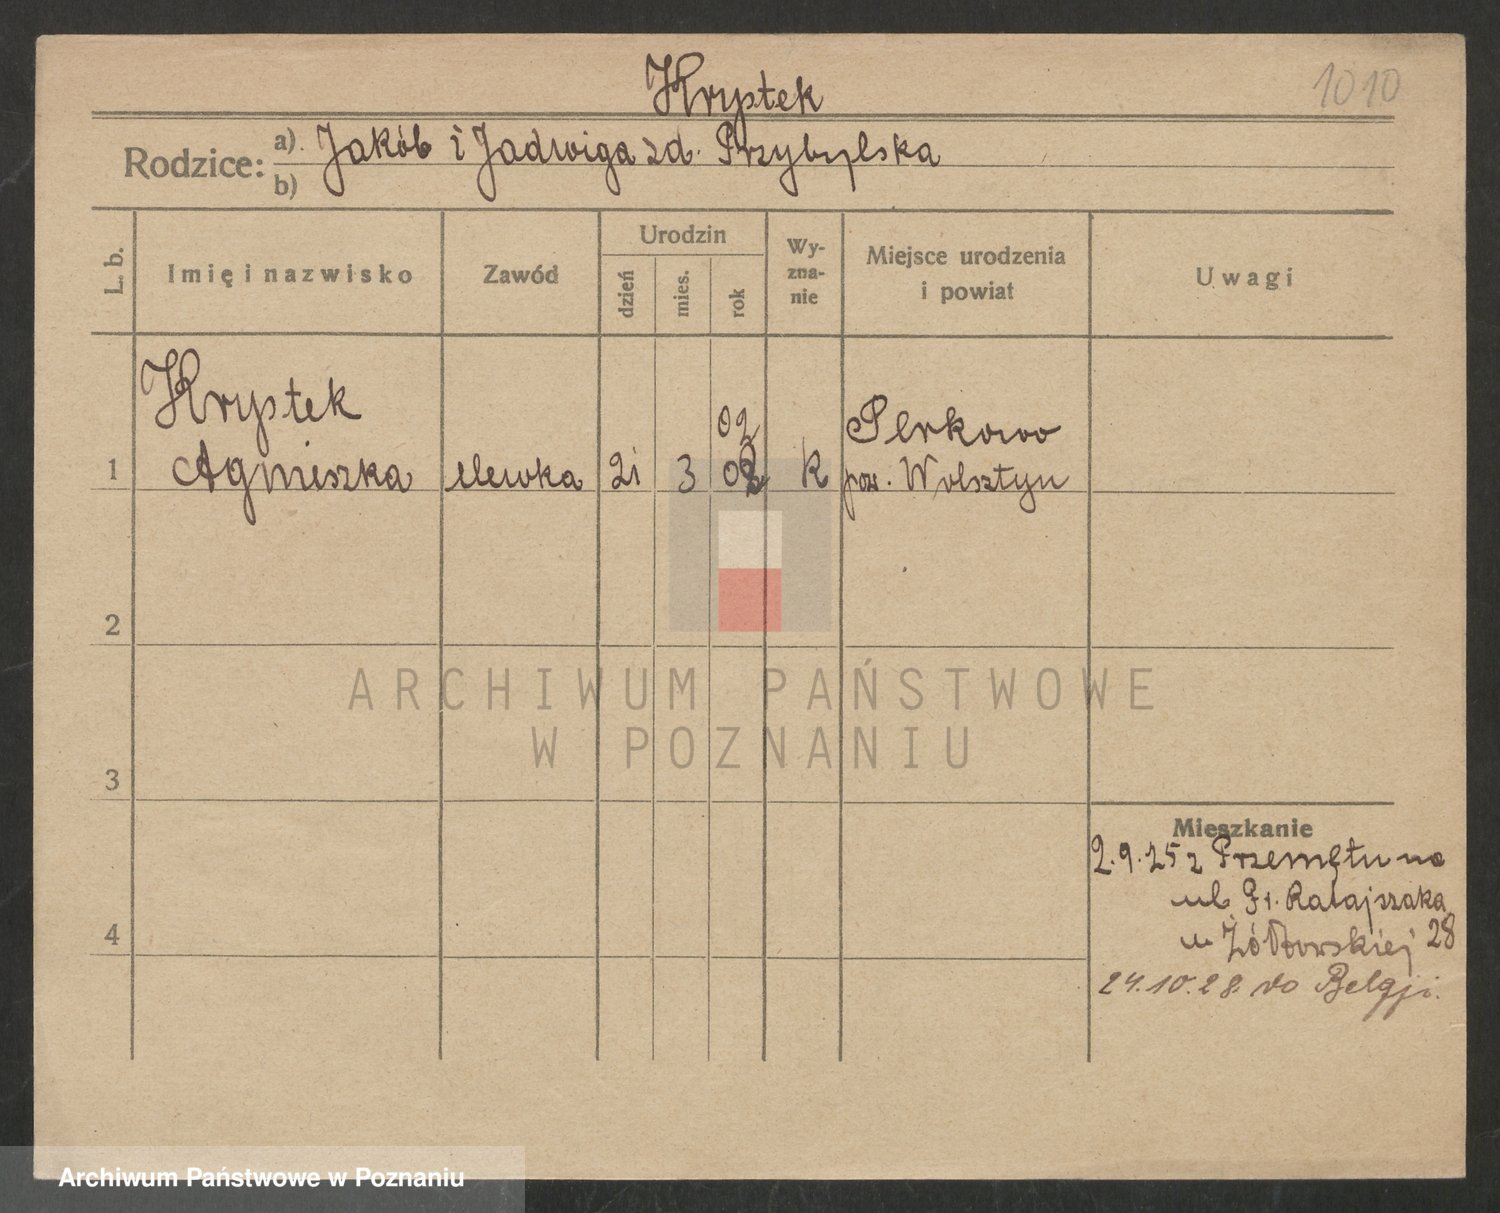 Krystek
1010
Rodzice: a). Jakób i Jadwiga zd. Przybylska
b)
L. b.
Imię i nazwisko
Zawód
Urodzin
dzień
mies.
rok
Wy-
zna-
nie
Miejsce urodzenia
i powiat
Uwagi
Krystek
02
Perkowo
1 Agnieszka elewka 21 3 02 K pow. Wolsztyn
2
3
4
ARCHIWUM PAŃSTWOWE
W POZNANIU
Mieszkanie
2.9.25 z Przemętu na
ul. Fr. Ratajczaka
u Żółtowskiej 28
24.10.28. do Belgji.
Archiwum Państwowe w Poznaniu